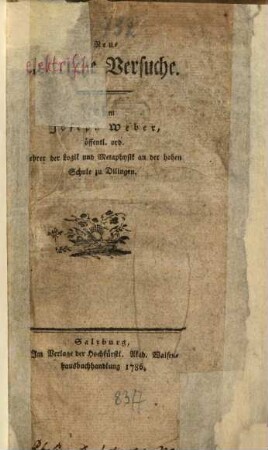 132
Neue
elektrische Versuche.
Joseph Weber,
öffentl. ord.
Lehrer der Logik und Metaphysik an der hohen
Schule zu Dilingen.
Salzburg,
Im Verlage der Hochfürstl. Akad. Waisen-
hausbuchhandlung 1786.
837